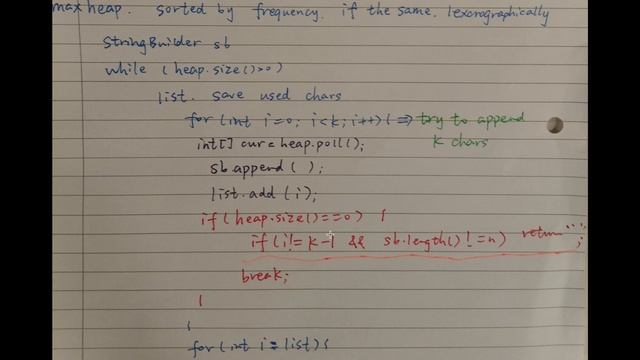 max heap. sorted by frequency. if the same. lexorographically
StringBuilder sb
while (heap.size()>0)
list. save used chars
for (int i=0; i<k; i++) { => try to append
k chars
int[] cur = heap.poll();
sb.append ( );
list.add (i);
if (heap.size()==0) {
if (i != k-1 && sb.length() != n) return "";
break;
}
}
for (int i = list) {